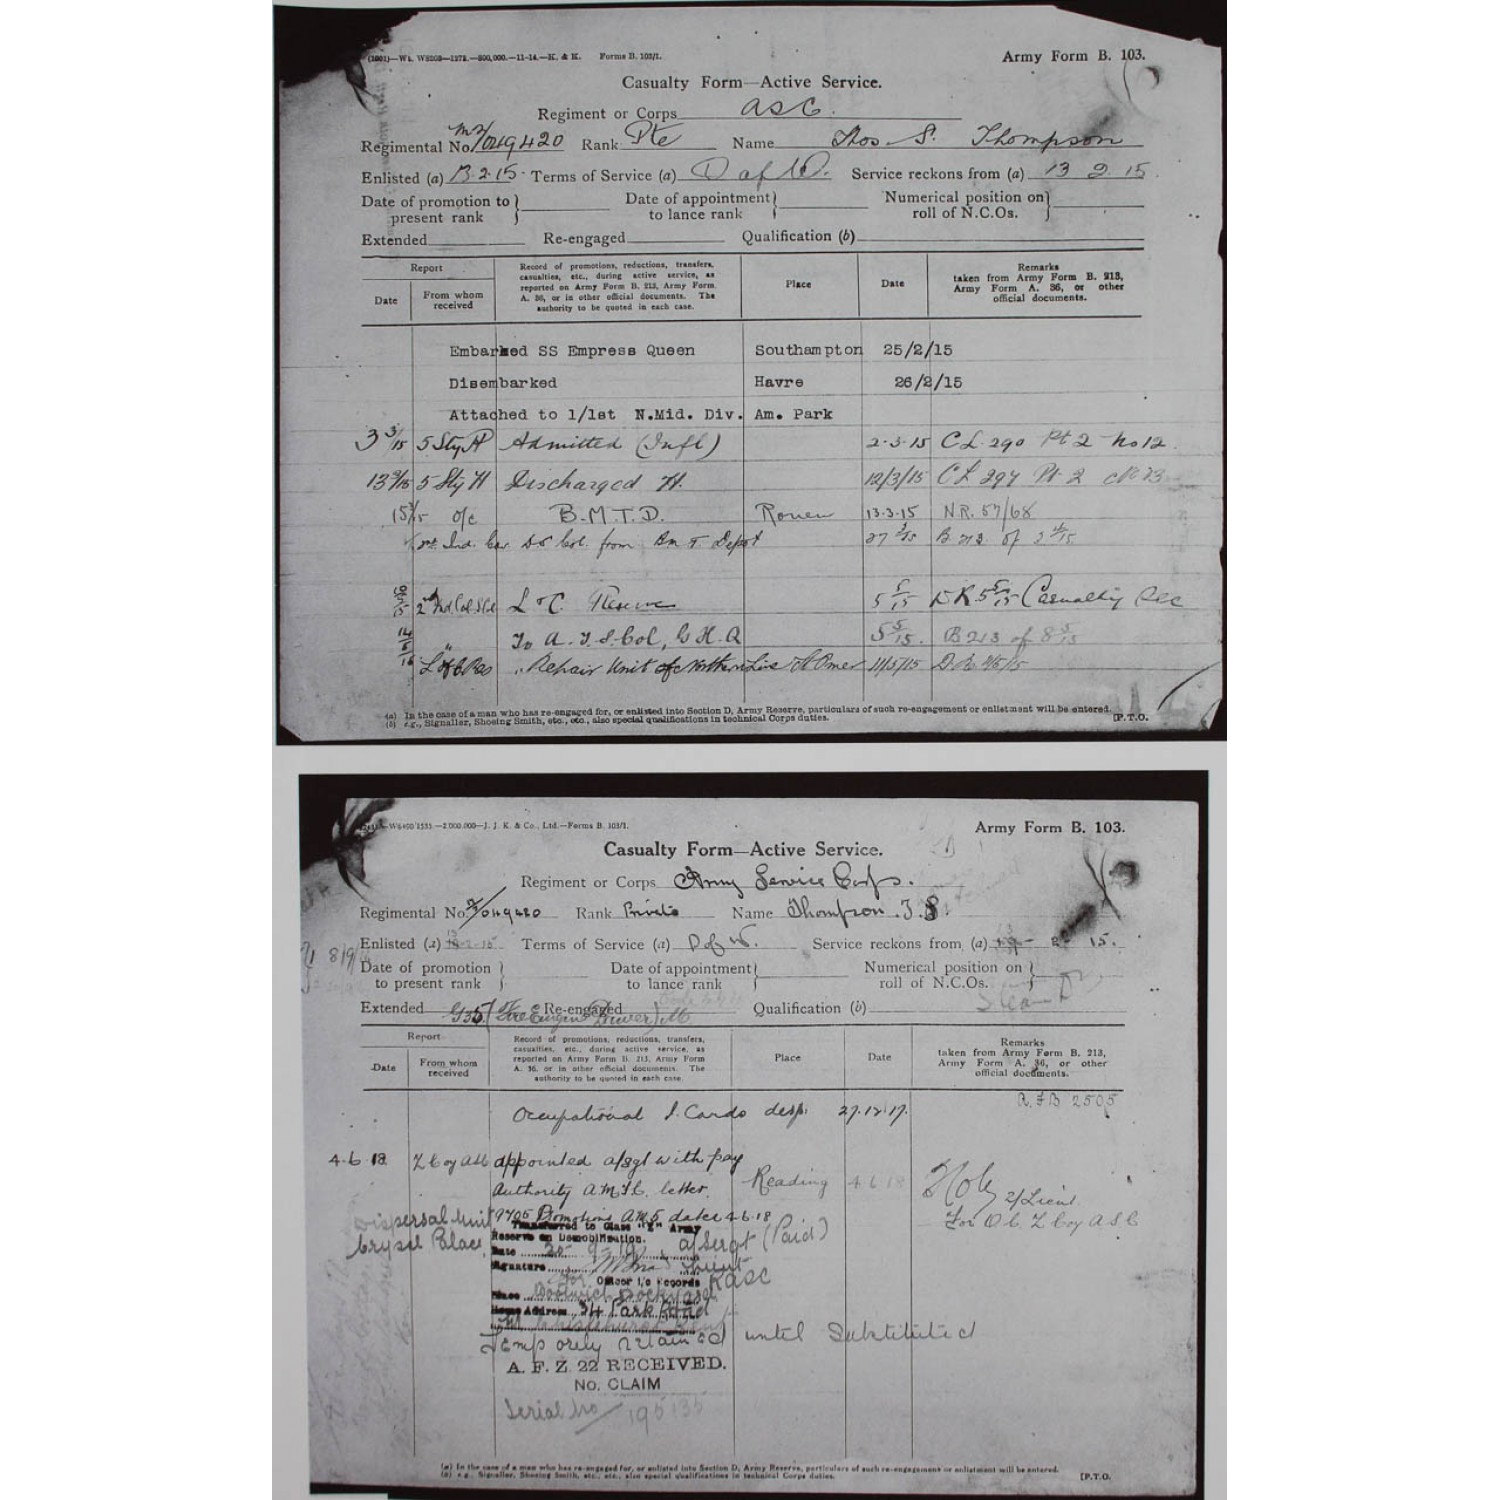 (1901)—Wt. W5205—1273.—500,000.—11-14.—K. & K. Forms B. 103/1.
Army Form B. 103.
Casualty Form—Active Service.
Regiment or Corps ASC.
Regimental No. M2/049420 Rank Pte Name Thos S. Thompson
Enlisted (a) 13.2.15. Terms of Service (a) D of W. Service reckons from (a) 13 2 15.
Date of promotion to present rank } Date of appointment to lance rank } Numerical position on roll of N.C.Os. }
Extended Re-engaged Qualification (b)
Report
Date From whom received Record of promotions, reductions, transfers, casualties, etc., during active service, as reported on Army Form B. 213, Army Form A. 36, or in other official documents. The authority to be quoted in each case. Place Date Remarks taken from Army Form B. 213, Army Form A. 36, or other official documents.
Embarked SS Empress Queen Southampton 25/2/15
Disembarked Havre 26/2/15
Attached to 1/1st N.Mid. Div. Am. Park
3 3/15 5 Sty H Admitted (Infl) 2.3.15 CL. 290 Pt 2 No 12.
13 3/15 5 Sty H Discharged H. 12/3/15 CL 297 Pt 2
15 3/15 o/c B.M.T.D. Rouen 13.3.15 N.R. 57/68
Ind. Cav. Col. from Depot 27 3/15 B 213 of 2 4/15
L of C. Reserve 5 5/15 5/15 Casualty
" To A. T. S. Col, G H. Q 5 5/15. B213 of 8 5/15
L of C Res " Repair Unit of Northern Line St Omer 11/5/15
(a) In the case of a man who has re-engaged for, or enlisted into Section D, Army Reserve, particulars of such re-engagement or enlistment will be entered.
(b) e.g., Signaller, Shoeing Smith, etc., etc., also special qualifications in technical Corps duties. [P.T.O.
W6490/1535.—2,000,000—J. J. K. & Co., Ltd.—Forms B. 103/1.
Army Form B. 103.
Casualty Form—Active Service.
Regiment or Corps Army Service Corps.
Regimental No. 2/049420 Rank Private Name Thompson. T. S.
Enlisted (a) 13-2-15 Terms of Service (a) D of W. Service reckons from (a) 2 - 15.
Date of promotion to present rank } Date of appointment to lance rank } Numerical position on roll of N.C.Os. }
Extended Re-engaged Qualification (b)
G35 (Fire Engine Driver)
Report
Date From whom received Record of promotions, reductions, transfers, casualties, etc., during active service, as reported on Army Form B. 213, Army Form A. 36, or in other official documents. The authority to be quoted in each case. Place Date Remarks taken from Army Form B. 213, Army Form A. 36, or other official documents.
A.F.B 2505
Occupational I. Cards desp. 27.12.17.
4.6.18. Z Coy ASC appointed a/sgt with pay
Authority A.M.F.C. letter. Reading 4 6 18
2/Lieut
9705 Promotions A.M.5 dated 4.6.18 For O.C. Z Coy A S C
Dispersal Unit Crystal Palace.
Transferred to Class "Z" Army
Reserve on Demobilization.
Date a/Sergt (Paid)
Signature Lieut
for Officer i/c Records RASC
Place Woolwich Dockyard
Home Address 34 Park Road
Chislehurst Kent
Temporely retained until Substituted
A. F. Z. 22 RECEIVED.
NO. CLAIM
Serial No 195135
(a) In the case of a man who has re-engaged for, or enlisted into Section D, Army Reserve, particulars of such re-engagement or enlistment will be entered.
(b) e.g., Signaller, Shoeing Smith, etc., etc., also special qualifications in technical Corps duties. [P.T.O.